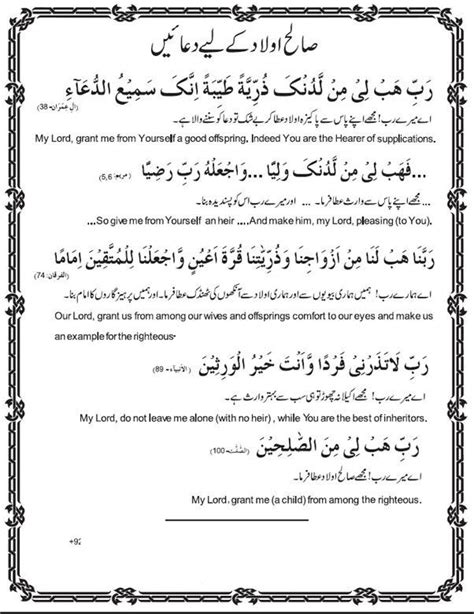 صالح اولاد کے لیے دعائیں
رَبِّ هَبْ لِیْ مِنْ لَّدُنْکَ ذُرِّیَّةً طَیِّبَةً اِنَّکَ سَمِیْعُ الدُّعَآءِ
(آلِ عِمْرٰن-38)
اے میرے رب! مجھے اپنے پاس سے پاکیزہ اولاد عطا کر بے شک تو دعا کو سننے والا ہے۔
My Lord, grant me from Yourself a good offspring. Indeed You are the Hearer of supplications.
...فَهَبْ لِیْ مِنْ لَّدُنْکَ وَلِیًّا ...وَاجْعَلْهُ رَبِّ رَضِیًّا (مریم: 5,6)
...مجھے اپنے پاس سے وارث عطا فرما۔ ... اور میرے رب اس کو پسندیدہ بنا۔
...So give me from Yourself an heir ....And make him, my Lord, pleasing (to You).
رَبَّنَا هَبْ لَنَا مِنْ اَزْوَاجِنَا وَذُرِّیّٰتِنَا قُرَّةَ اَعْیُنٍ وَّاجْعَلْنَا لِلْمُتَّقِیْنَ اِمَامًا
(الفرقان: 74)
اے ہمارے رب! ہمیں ہماری بیویوں سے اور ہماری اولاد سے آنکھوں کی ٹھنڈک عطا فرما۔ اور ہمیں پرہیزگاروں کا امام بنا۔
Our Lord, grant us from among our wives and offsprings comfort to our eyes and make us
an example for the righteous.
رَبِّ لَاتَذَرْنِیْ فَرْدًا وَّاَنْتَ خَیْرُ الْوٰرِثِیْنَ (الأنبیاء - 89)
اے میرے رب! مجھے اکیلا نہ چھوڑ تو ہی سب سے بہتر وارث ہے۔
My Lord, do not leave me alone (with no heir), while You are the best of inheritors.
رَبِّ هَبْ لِیْ مِنَ الصّٰلِحِیْنَ (الصّٰٓفّٰت-100)
اے میرے رب! مجھے صالح اولاد عطا فرما۔
My Lord, grant me (a child) from among the righteous.